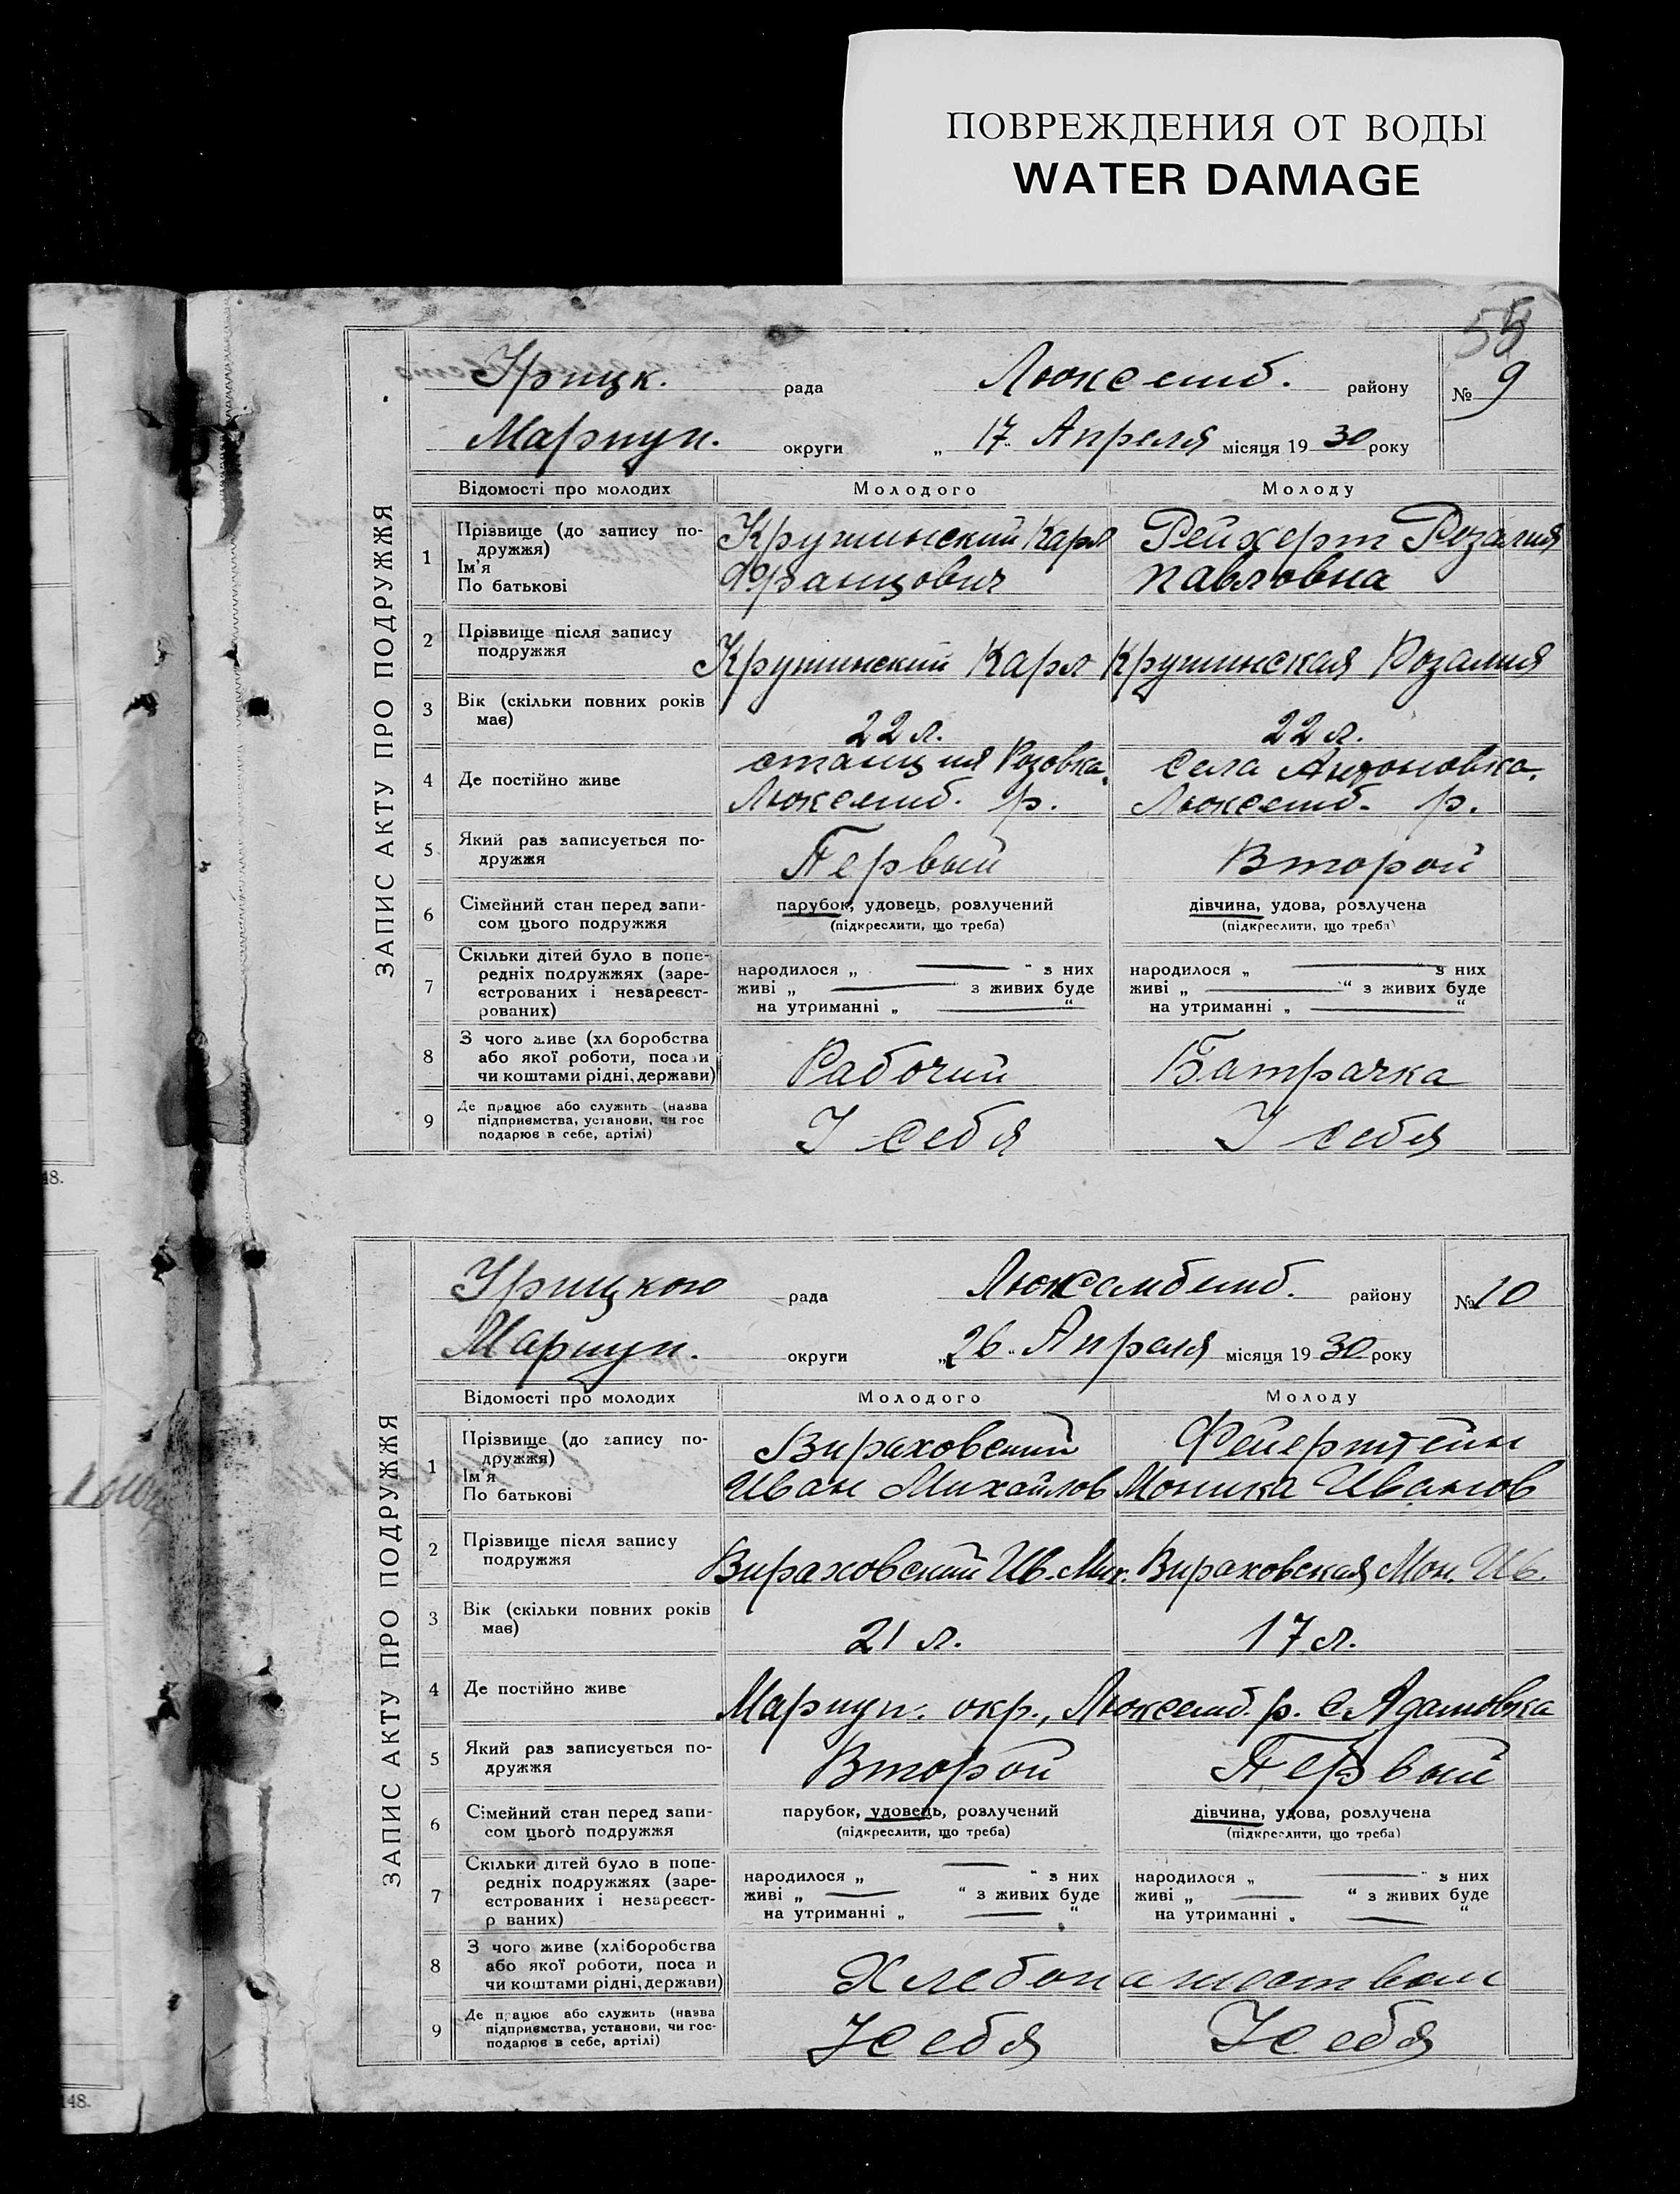 ПОВРЕЖДЕНИЯ ОТ ВОДЫ
WATER DAMAGE
9
Урицк. рада Люксемб. району № 9
Мариуп. округи „ 17 „ Апреля місяця 19 30 року
ЗАПИС АКТУ ПРО ПОДРУЖЖЯ
Відомості про молодих Молодого Молоду
1 Прізвище (до запису по-
дружжя)
Ім'я
По батькові
Крушинский Карл
Францович
Рейхерт Розалия
Павловна
2 Прізвище після запису
подружжя
Крушинский Карл Крушинская Розалия
3 Вік (скільки повних років
має)
22 л. 22 л.
4 Де постійно живе
станция Розовка,
Люксемб. р.
Села Антоновка.
Люксемб. р.
5 Який раз записується по-
дружжя
Первый Второй
6 Сімейний стан перед запи-
сом цього подружжя
парубок, удовець, розлучений
(підкреслити, що треба)
дівчина, удова, розлучена
(підкреслити, що треба)
7 Скільки дітей було в попе-
редніх подружжях (заре-
єстрованих і незареєст-
рованих)
народилося „ — “ з них
живі „ — “ з живих буде
на утриманні „ — “
народилося „ — “ з них
живі „ — “ з живих буде
на утриманні „ — “
8 З чого живе (хл боробства
або якої роботи, поса и
чи коштами рідні, держави)
Рабочий Батрачка
9 Де працює або служить (назва
підприємства, установи, чи гос
подарює в себе, артілі)
У себя У себя
48.
Урицкою рада Люксембемб. району № 10
Мариуп. округи „ 26 „ Апреля місяця 19 30 року
ЗАПИС АКТУ ПРО ПОДРУЖЖЯ
Відомості про молодих Молодого Молоду
1 Прізвище (до запису по-
дружжя)
Ім'я
По батькові
Вираховский
Иван Михайлов
Фейерштейн
Моника Иванов
2 Прізвище після запису
подружжя
Вираховский Ив. Мих. Вираховская Мон. Ив.
3 Вік (скільки повних років
має)
21 л. 17 л.
4 Де постійно живе
Мариуп. окр., Люксемб. р. с. Адамовка
5 Який раз записується по-
дружжя
Второй Первый
6 Сімейний стан перед запи-
сом цього подружжя
парубок, удовець, розлучений
(підкреслити, що треба)
дівчина, удова, розлучена
(підкреслити, що треба)
7 Скільки дітей було в попе-
редніх подружжях (заре-
єстрованих і незареєст-
р ваних)
народилося „ — “ з них
живі „ — “ з живих буде
на утриманні „ — “
народилося „ — “ з них
живі „ — “ з живих буде
на утриманні „ — “
8 З чого живе (хліборобства
або якої роботи, поса и
чи коштами рідні, держави)
Хлебопашеством
9 Де п ацює або служить (назва
підприємства, установи, чи гос-
подарює в себе, артілі)
У себя У себя
148.